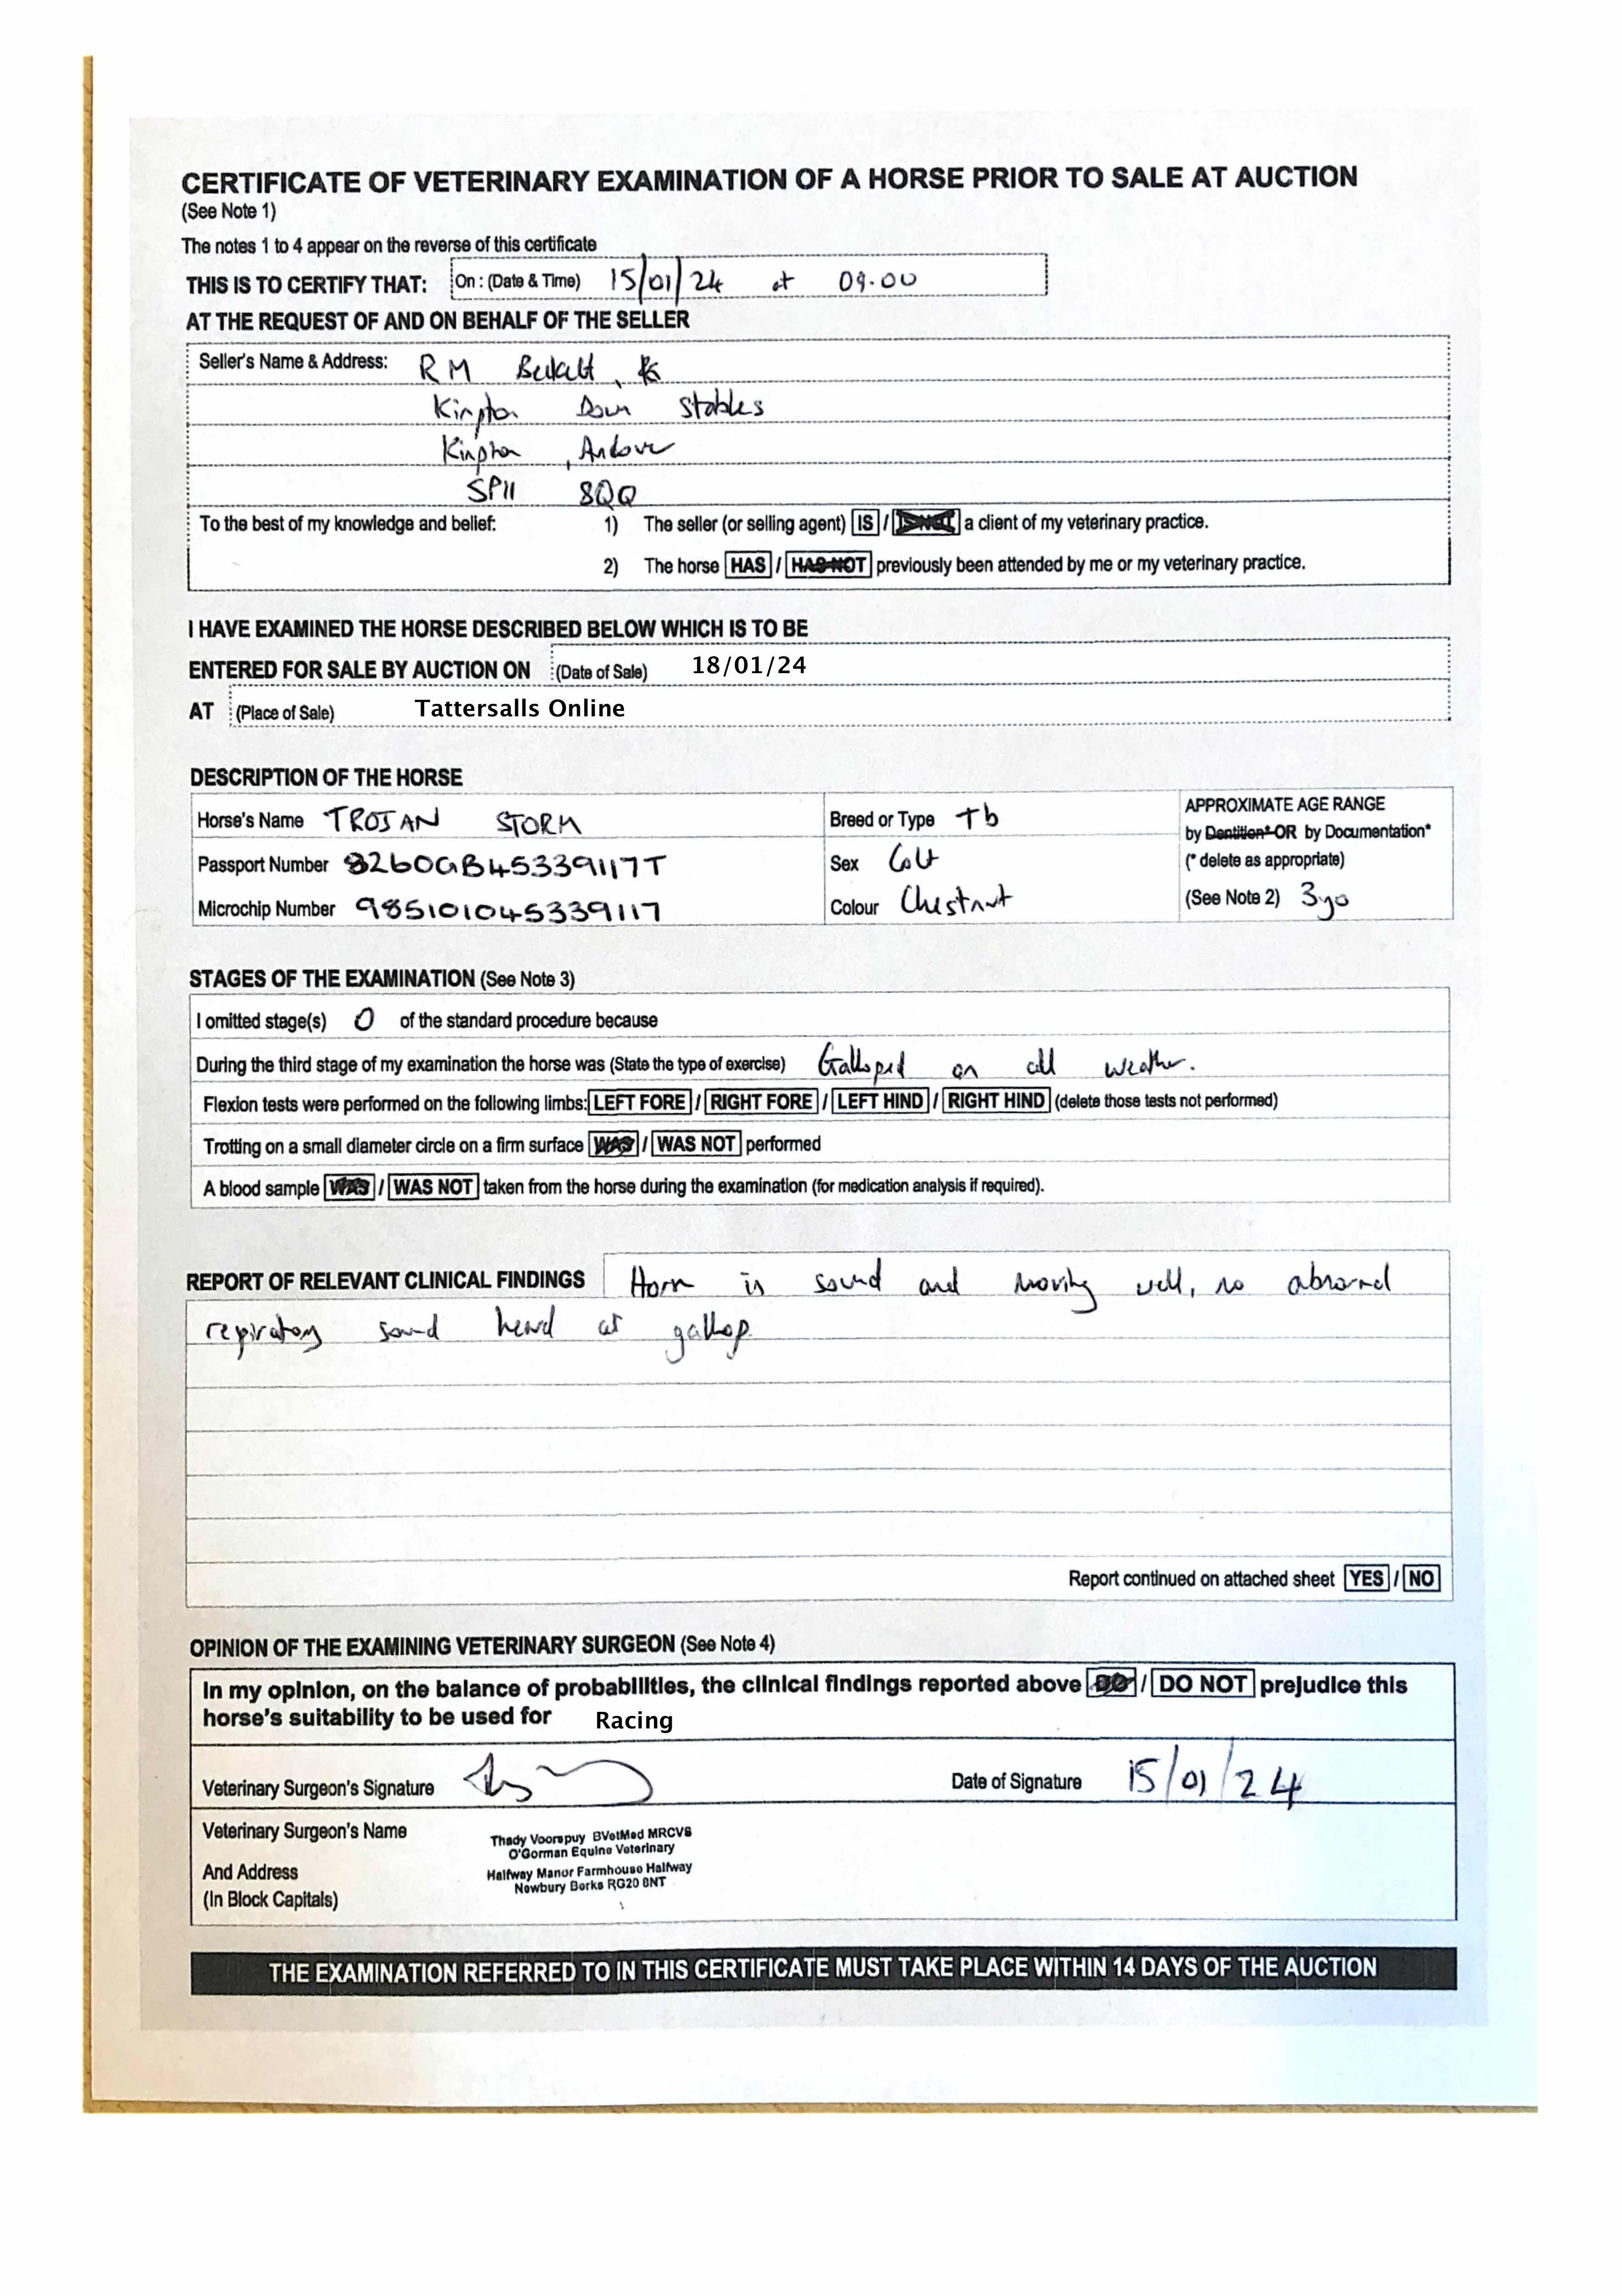 CERTIFICATE OF VETERINARY EXAMINATION OF A HORSE PRIOR TO SALE AT AUCTION
(See Note 1)
The notes 1 to 4 appear on the reverse of this certificate
THIS IS TO CERTIFY THAT: On : (Date & Time) 15/01/24 at 09.00
AT THE REQUEST OF AND ON BEHALF OF THE SELLER
Seller's Name & Address: R M
Stables
Andover
SP11 8QQ
To the best of my knowledge and belief: 1) The seller (or selling agent) IS / IS NOT a client of my veterinary practice.
2) The horse HAS / HAS NOT previously been attended by me or my veterinary practice.
I HAVE EXAMINED THE HORSE DESCRIBED BELOW WHICH IS TO BE
ENTERED FOR SALE BY AUCTION ON (Date of Sale) 18/01/24
AT (Place of Sale) Tattersalls Online
DESCRIPTION OF THE HORSE
Horse's Name TROJAN STORM Breed or Type Tb APPROXIMATE AGE RANGE
by Dentition* OR by Documentation*
Passport Number 8260GB45339117T Sex Colt (* delete as appropriate)
Microchip Number 985101045339117 Colour Chestnut (See Note 2) 3yo
STAGES OF THE EXAMINATION (See Note 3)
I omitted stage(s) 0 of the standard procedure because
During the third stage of my examination the horse was (State the type of exercise) Galloped on all weather.
Flexion tests were performed on the following limbs: LEFT FORE / RIGHT FORE / LEFT HIND / RIGHT HIND (delete those tests not performed)
Trotting on a small diameter circle on a firm surface WAS / WAS NOT performed
A blood sample WAS / WAS NOT taken from the horse during the examination (for medication analysis if required).
REPORT OF RELEVANT CLINICAL FINDINGS Horse is sound and moving well, no abnormal
respiratory sound heard at gallop.
Report continued on attached sheet YES / NO
OPINION OF THE EXAMINING VETERINARY SURGEON (See Note 4)
In my opinion, on the balance of probabilities, the clinical findings reported above DO / DO NOT prejudice this
horse's suitability to be used for Racing
Veterinary Surgeon's Signature Date of Signature 15/01/24
Veterinary Surgeon's Name
And Address
(In Block Capitals)
Thady Voorspuy BVetMed MRCVS
O'Gorman Equine Veterinary
Halfway Manor Farmhouse Halfway
Newbury Berks RG20 8NT
THE EXAMINATION REFERRED TO IN THIS CERTIFICATE MUST TAKE PLACE WITHIN 14 DAYS OF THE AUCTION